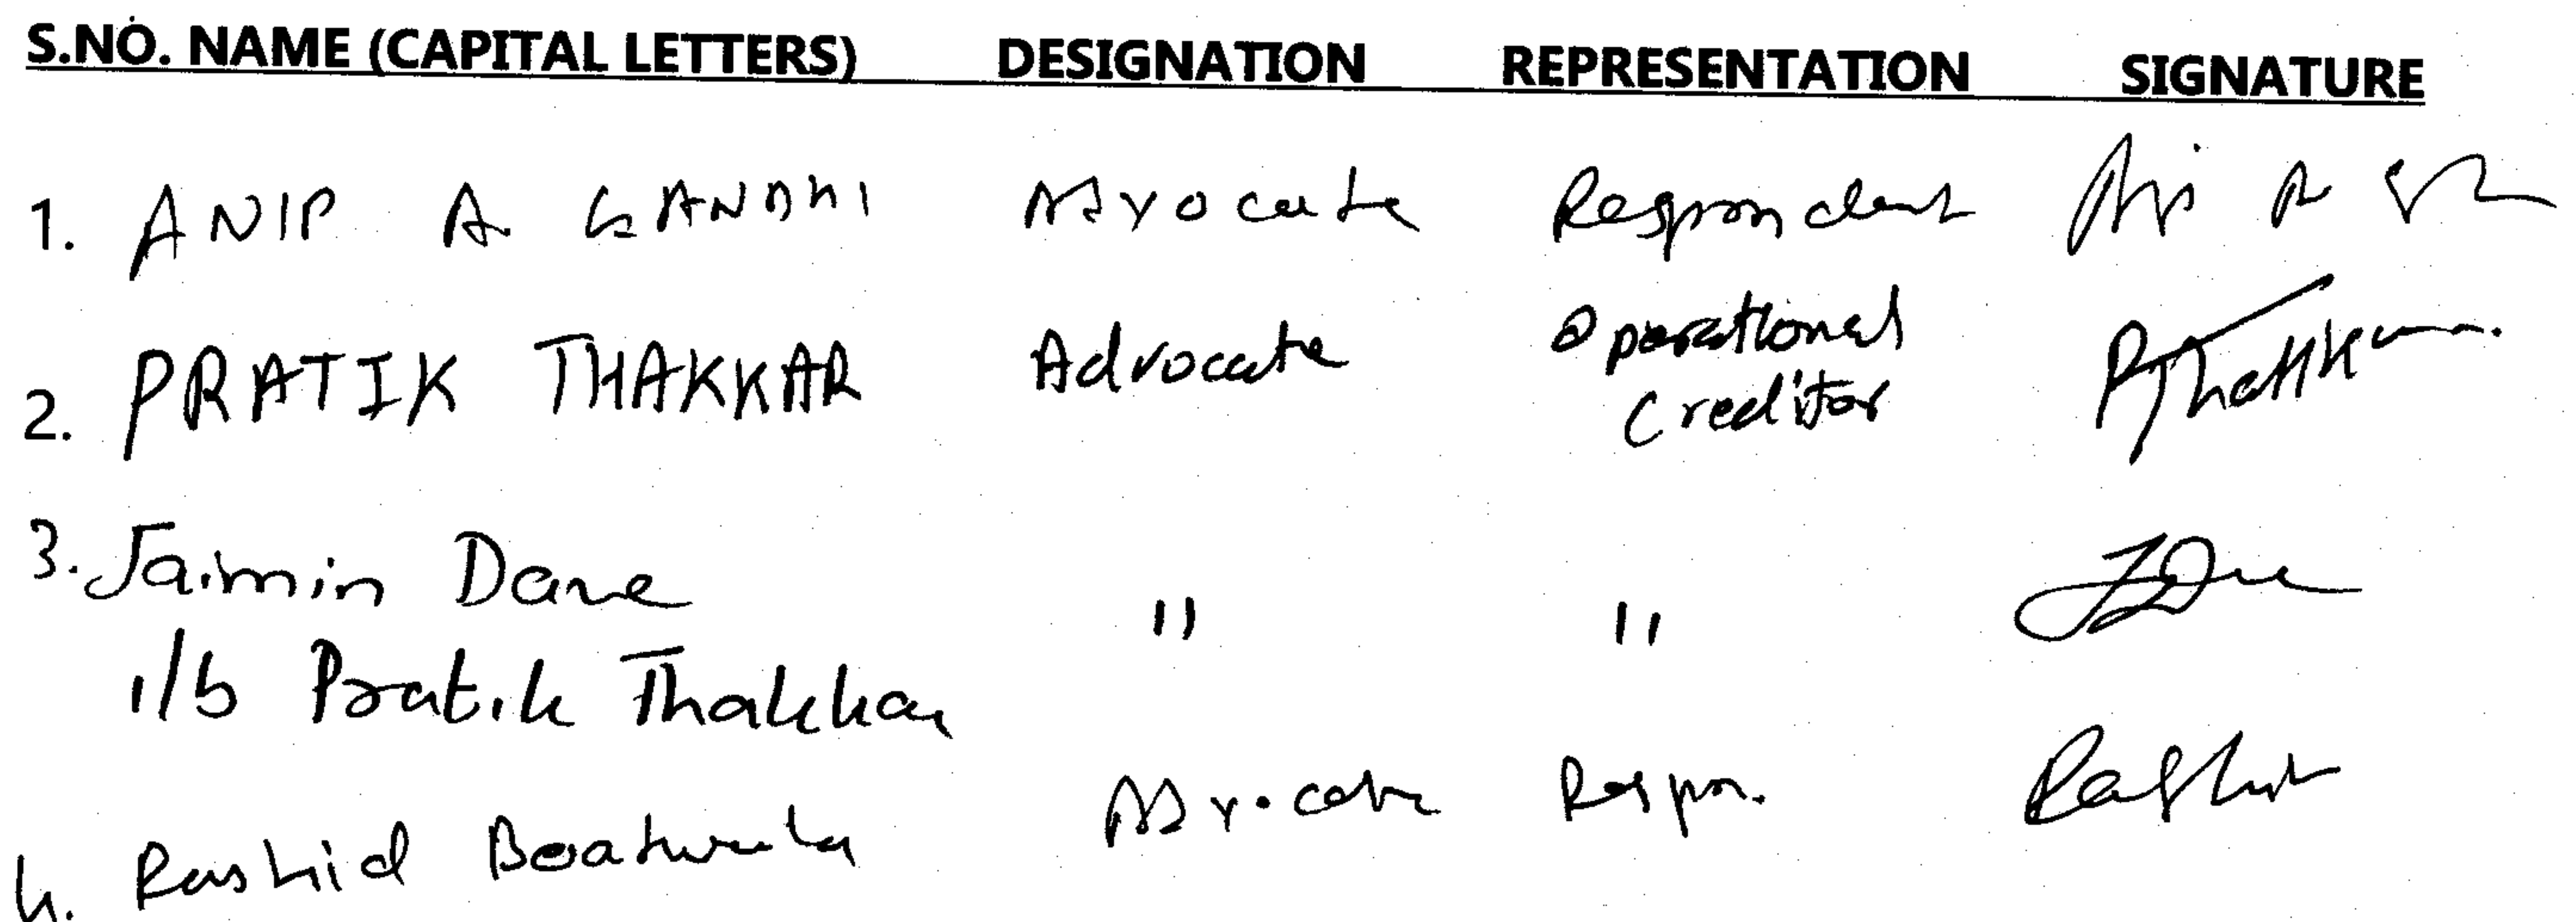 S.NO. NAME (CAPITAL LETTERS) DESIGNATION REPRESENTATION SIGNATURE
1. ANIP A. GANDHI Advocate Respondent
2. PRATIK THAKKAR Advocate Operational Creditor PThakkar
3. Jaimin Dave " " JDave
i/b Pratik Thakkar
4. Rashid Boatwala Advocate Respon. Rashid